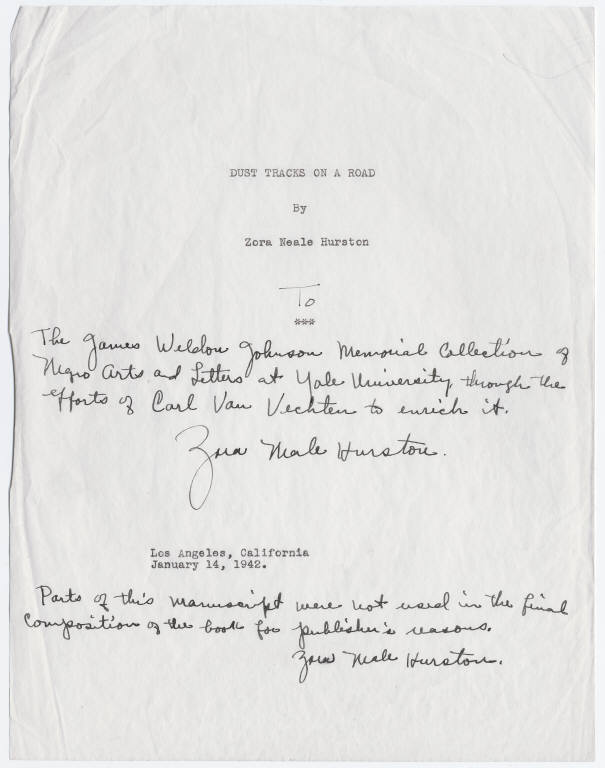 DUST TRACKS ON A ROAD
By
Zora Neale Hurston
To
***
The James Weldon Johnson Memorial Collection of
Negro Arts and Letters at Yale University, through the
efforts of Carl Van Vechten to enrich it.
Zora Neale Hurston.
Los Angeles, California
January 14, 1942.
Parts of this manuscript were not used in the final
composition of the book for publisher's reasons.
Zora Neale Hurston.